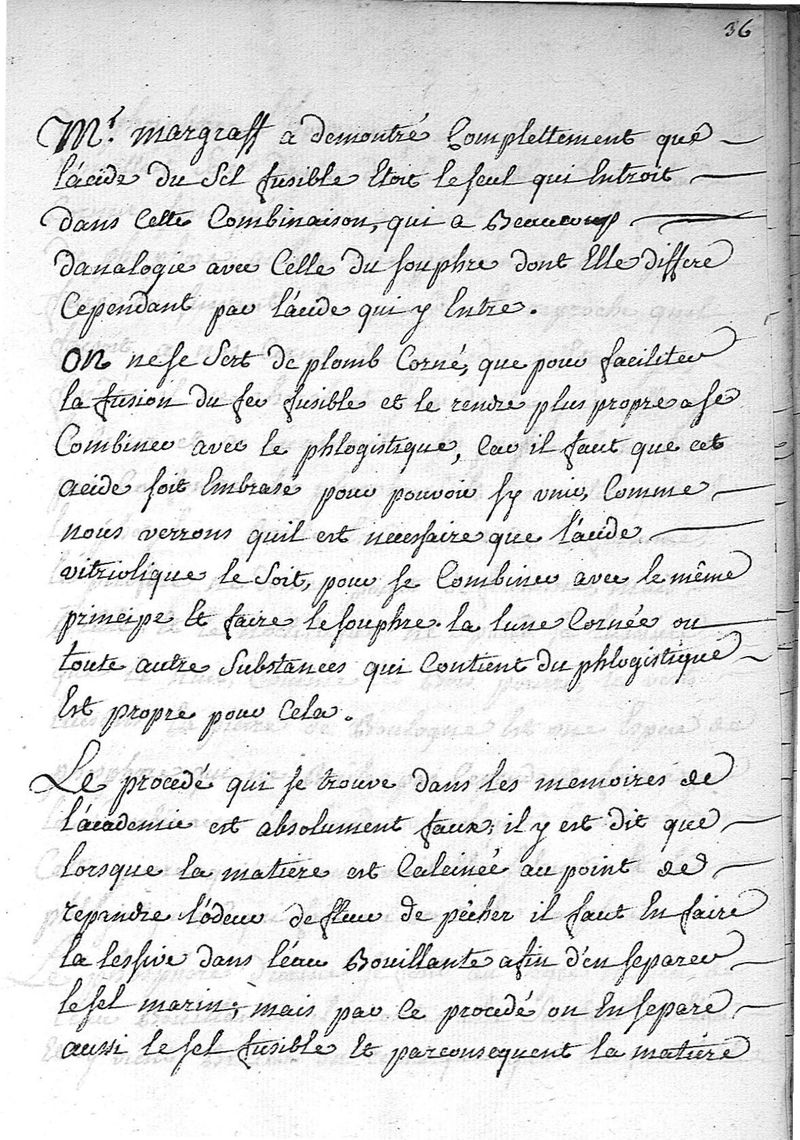 36
Mr. margraff a demontré Complettement que
l'acide du Sel fusible Etoit le seul qui Entroit
dans Cette Combinaison, qui a Beaucoup
danalogie avec Celle du souphre dont Elle differe
Cependant par l'acide qui y Entre.
On ne se Sert de plomb Corné, que pour faciliter
la fusion du feu fusible et le rendre plus propre a se
Combiner avec le phlogistique, Car il faut que cet
acide soit Embrasé pour pouvoir s'y unir, Comme
nous verrons quil est necessaire que l'acide
vitriolique le Soit, pour se Combiner avec le même
principe Et faire le souphre. la lune Cornée ou
toute autre Substances qui Contient du phlogistique
Est propre pour Cela.
Le procedé qui se trouve dans les memoires de
l'academie est absolument faux, il y est dit que
lorsque la matiere est Calcinée au point de
repandre l'odeur de fleur de pêcher il faut En faire
la lessive dans l'eau Bouillante afin d'en separer
le sel marin; mais par Ce procedé on En separe
aussi le sel fusible Et parconsequent la matiére